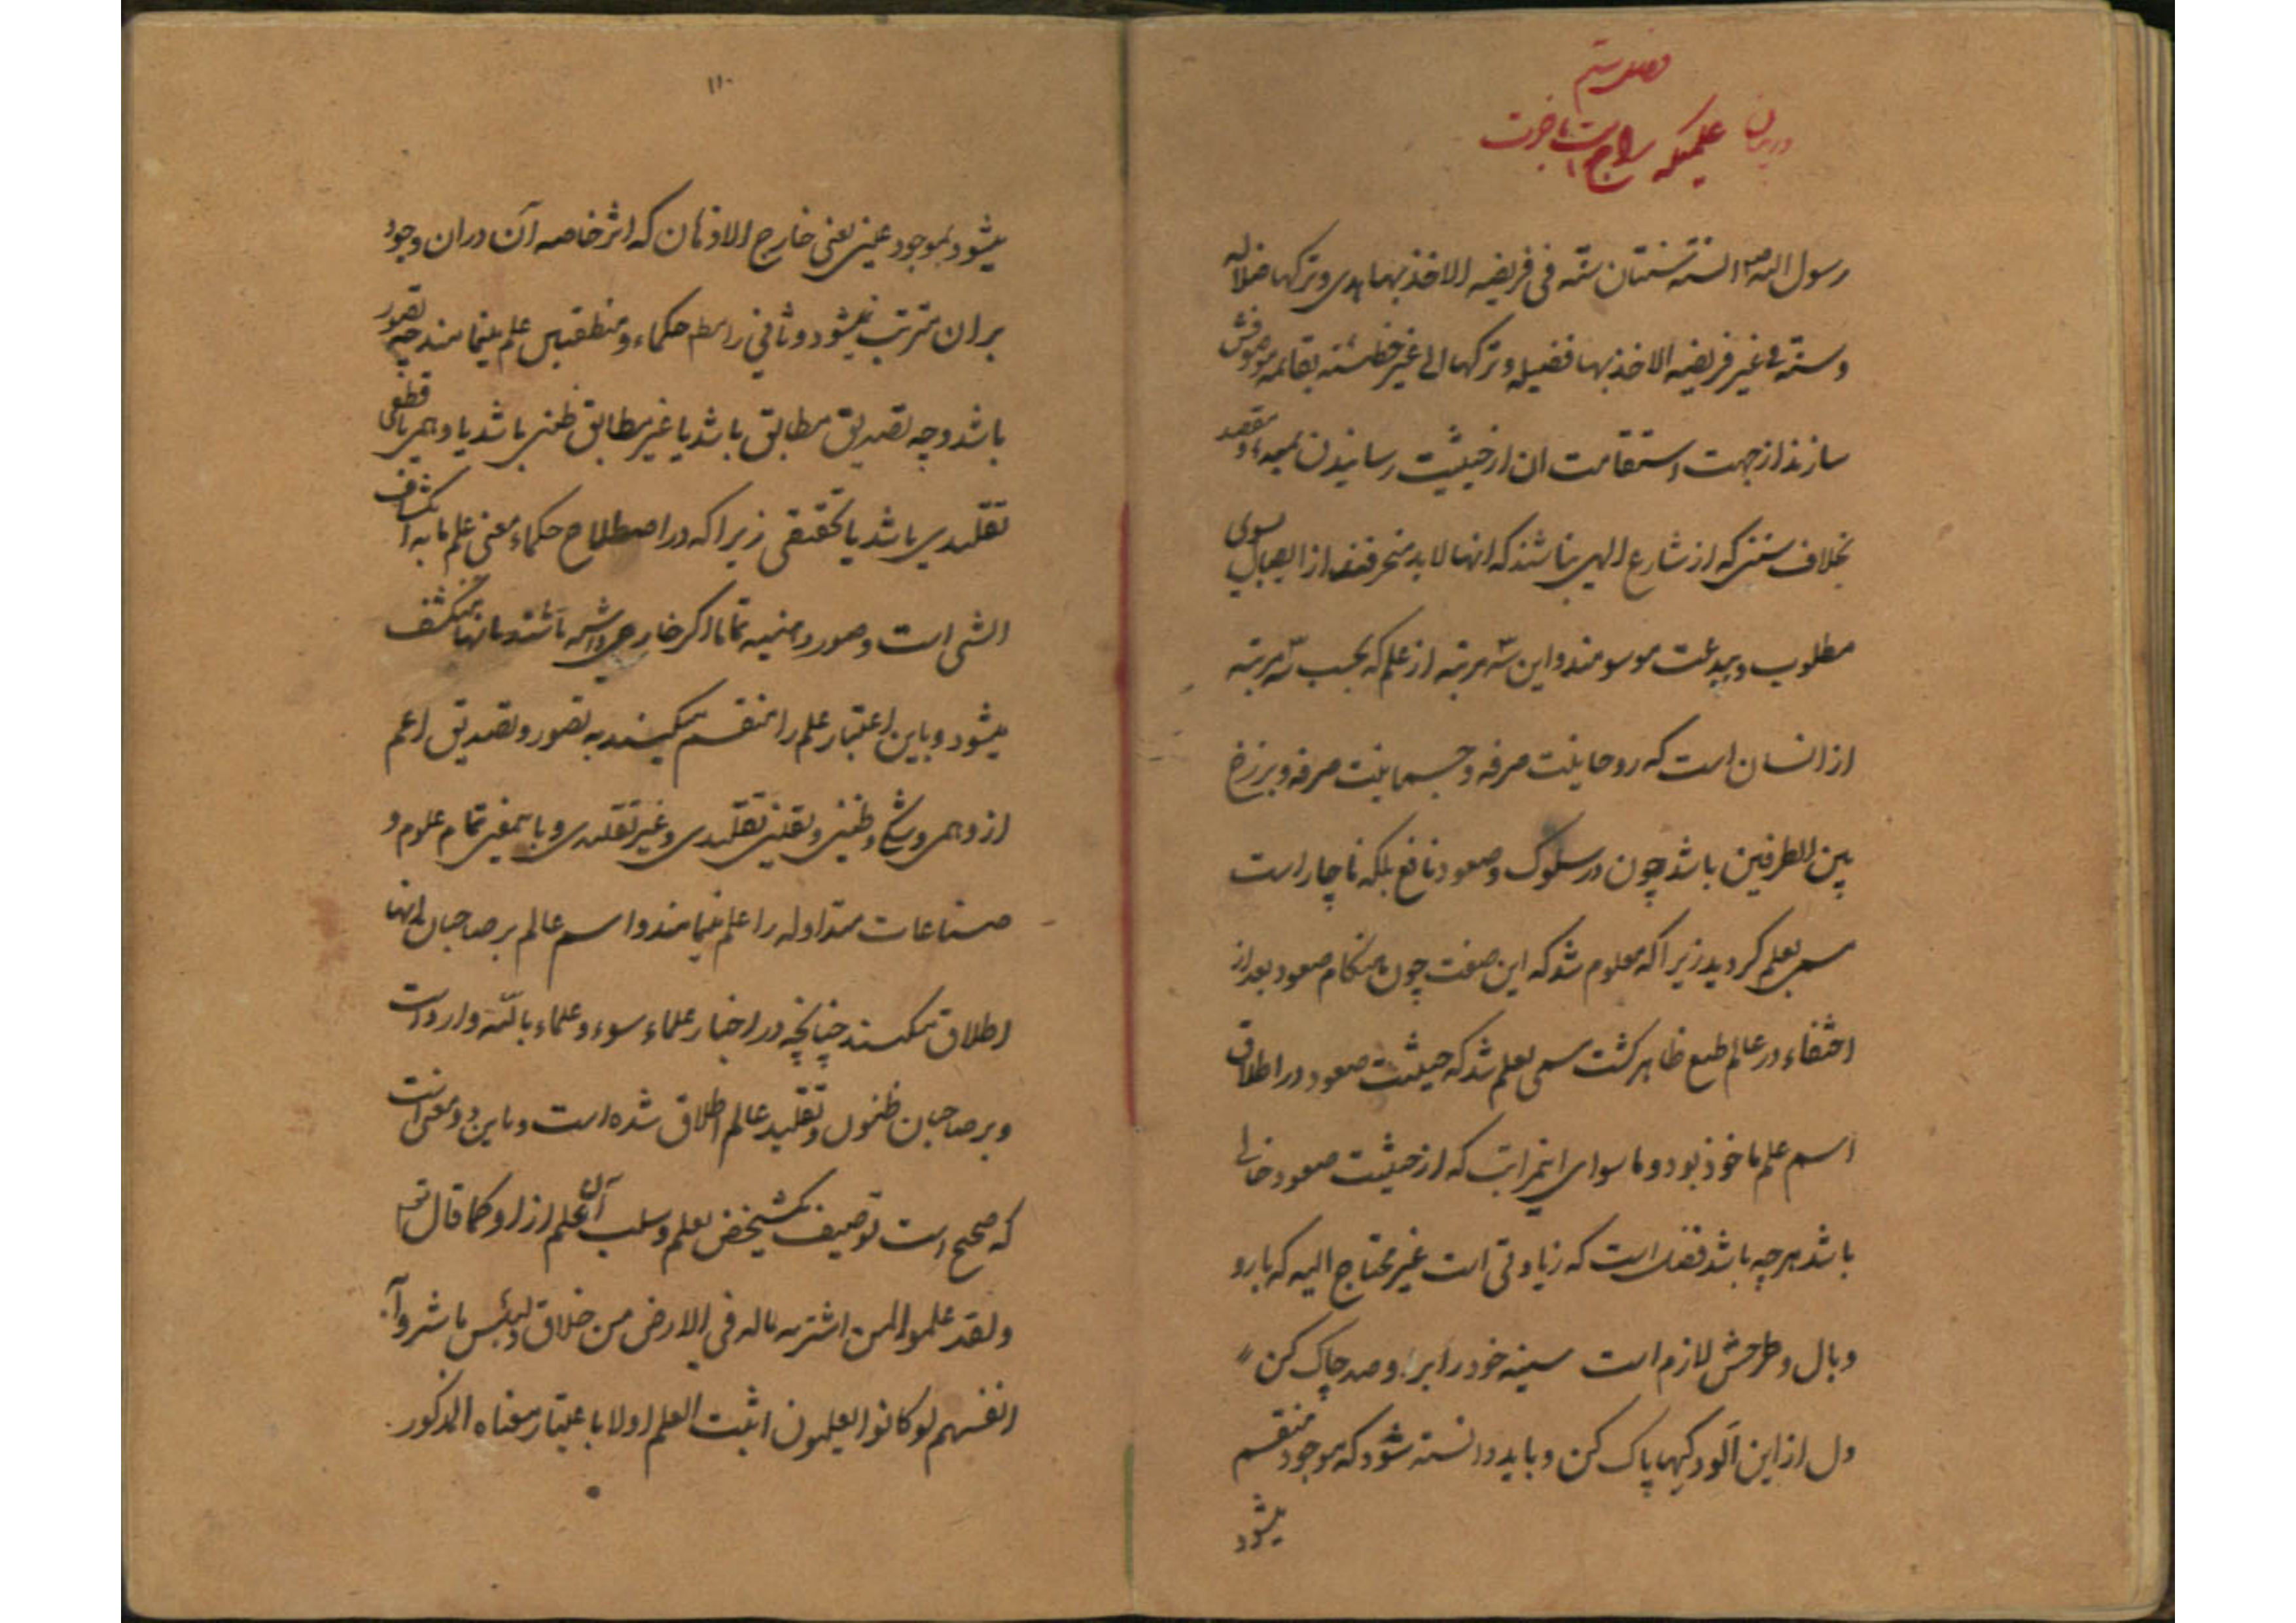 فصل ششم
در بیان علمیکه راجح است باخرت
رسول الله ص السنة سنتان سنة فی فریضه الاخذ بها هدی و ترکها ضلاله
و سنة فی غیر فریضه الاخذ بها فضیله و ترکها الی غیر خطیئته بقائمه موصوفش
سازند از جهت استقامت ان از حیثیت رسانیدن بمبدء و مقصد
بخلاف سننی که از شارع الهی نباشند که انها لابد منحرفند از ایصال بسوی
مطلوب و ببدعت موسومند و این سه مرتبه از علم که بحسب سه مرتبه
از انسان است که روحانیت صرفه و جسمانیت صرفه و برزخ
بین الطرفین باشد چون در سلوک و صعود نافع بلکه ناچار است
مسمی بعلم گردید زیرا که معلوم شد که این صفت چون هنگام صعود بعد از
اختفاء در عالم طبع ظاهر گشت مسمی بعلم شد که حیثیت صعود در اطلاق
اسم علم ماخوذ بود و ماسوای اینمراتب که از حیثیت صعود خالی
باشد هرچه باشد فضل است که زیادتی است غیر محتاج الیه که بار و
وبال و طرحش لازم است سینه خود را برو صد چاک کن
دل از این آلودگیها پاک کن و باید دانسته شود که موجود منقسم
میشود
۱۱۰
میشود بموجود عینی یعنی خارج الاذهان که اثر خاصه آن دران وجود
بران مترتب میشود و ثانی را مط حکماء و منطقیین علم مینامند چه تصور
باشد و چه تصدیق مطابق باشد یا غیر مطابق ظنی باشد یا وهمی یا قطعی
تقلیدی باشد یا تحقیقی زیرا که در اصطلاح حکماء معنی علم ما به انکشاف
الشی است و صور ذهنیه تماما اگر خارجی داشته باشند بانها منکشف
میشود و باین اعتبار علم را منقسم میکنند به تصور و تصدیق اعم
از وهمی و شکی و ظنی و یقینی تقلیدی و غیر تقلیدی و باینمعنی تمام علوم و
صناعات متداوله را علم مینامند و اسم عالم بر صاحبان انها
اطلاق میکنند چنانچه در اخبار علماء سوء و علماء بالسنة وارد است
و بر صاحبان ظنون و تقلید عالم اطلاق شده است و باین دو معنی است
که صحیح است توصیف یکشخص بعلم و سلب آن علم از او کما قال تعالی
و لقد علموا لمن اشتریه ماله فی الارض من خلاق و لبئس ما شروا به
انفسهم لو کانوا یعلمون اثبت العلم اولا باعتبار معناه المذکور